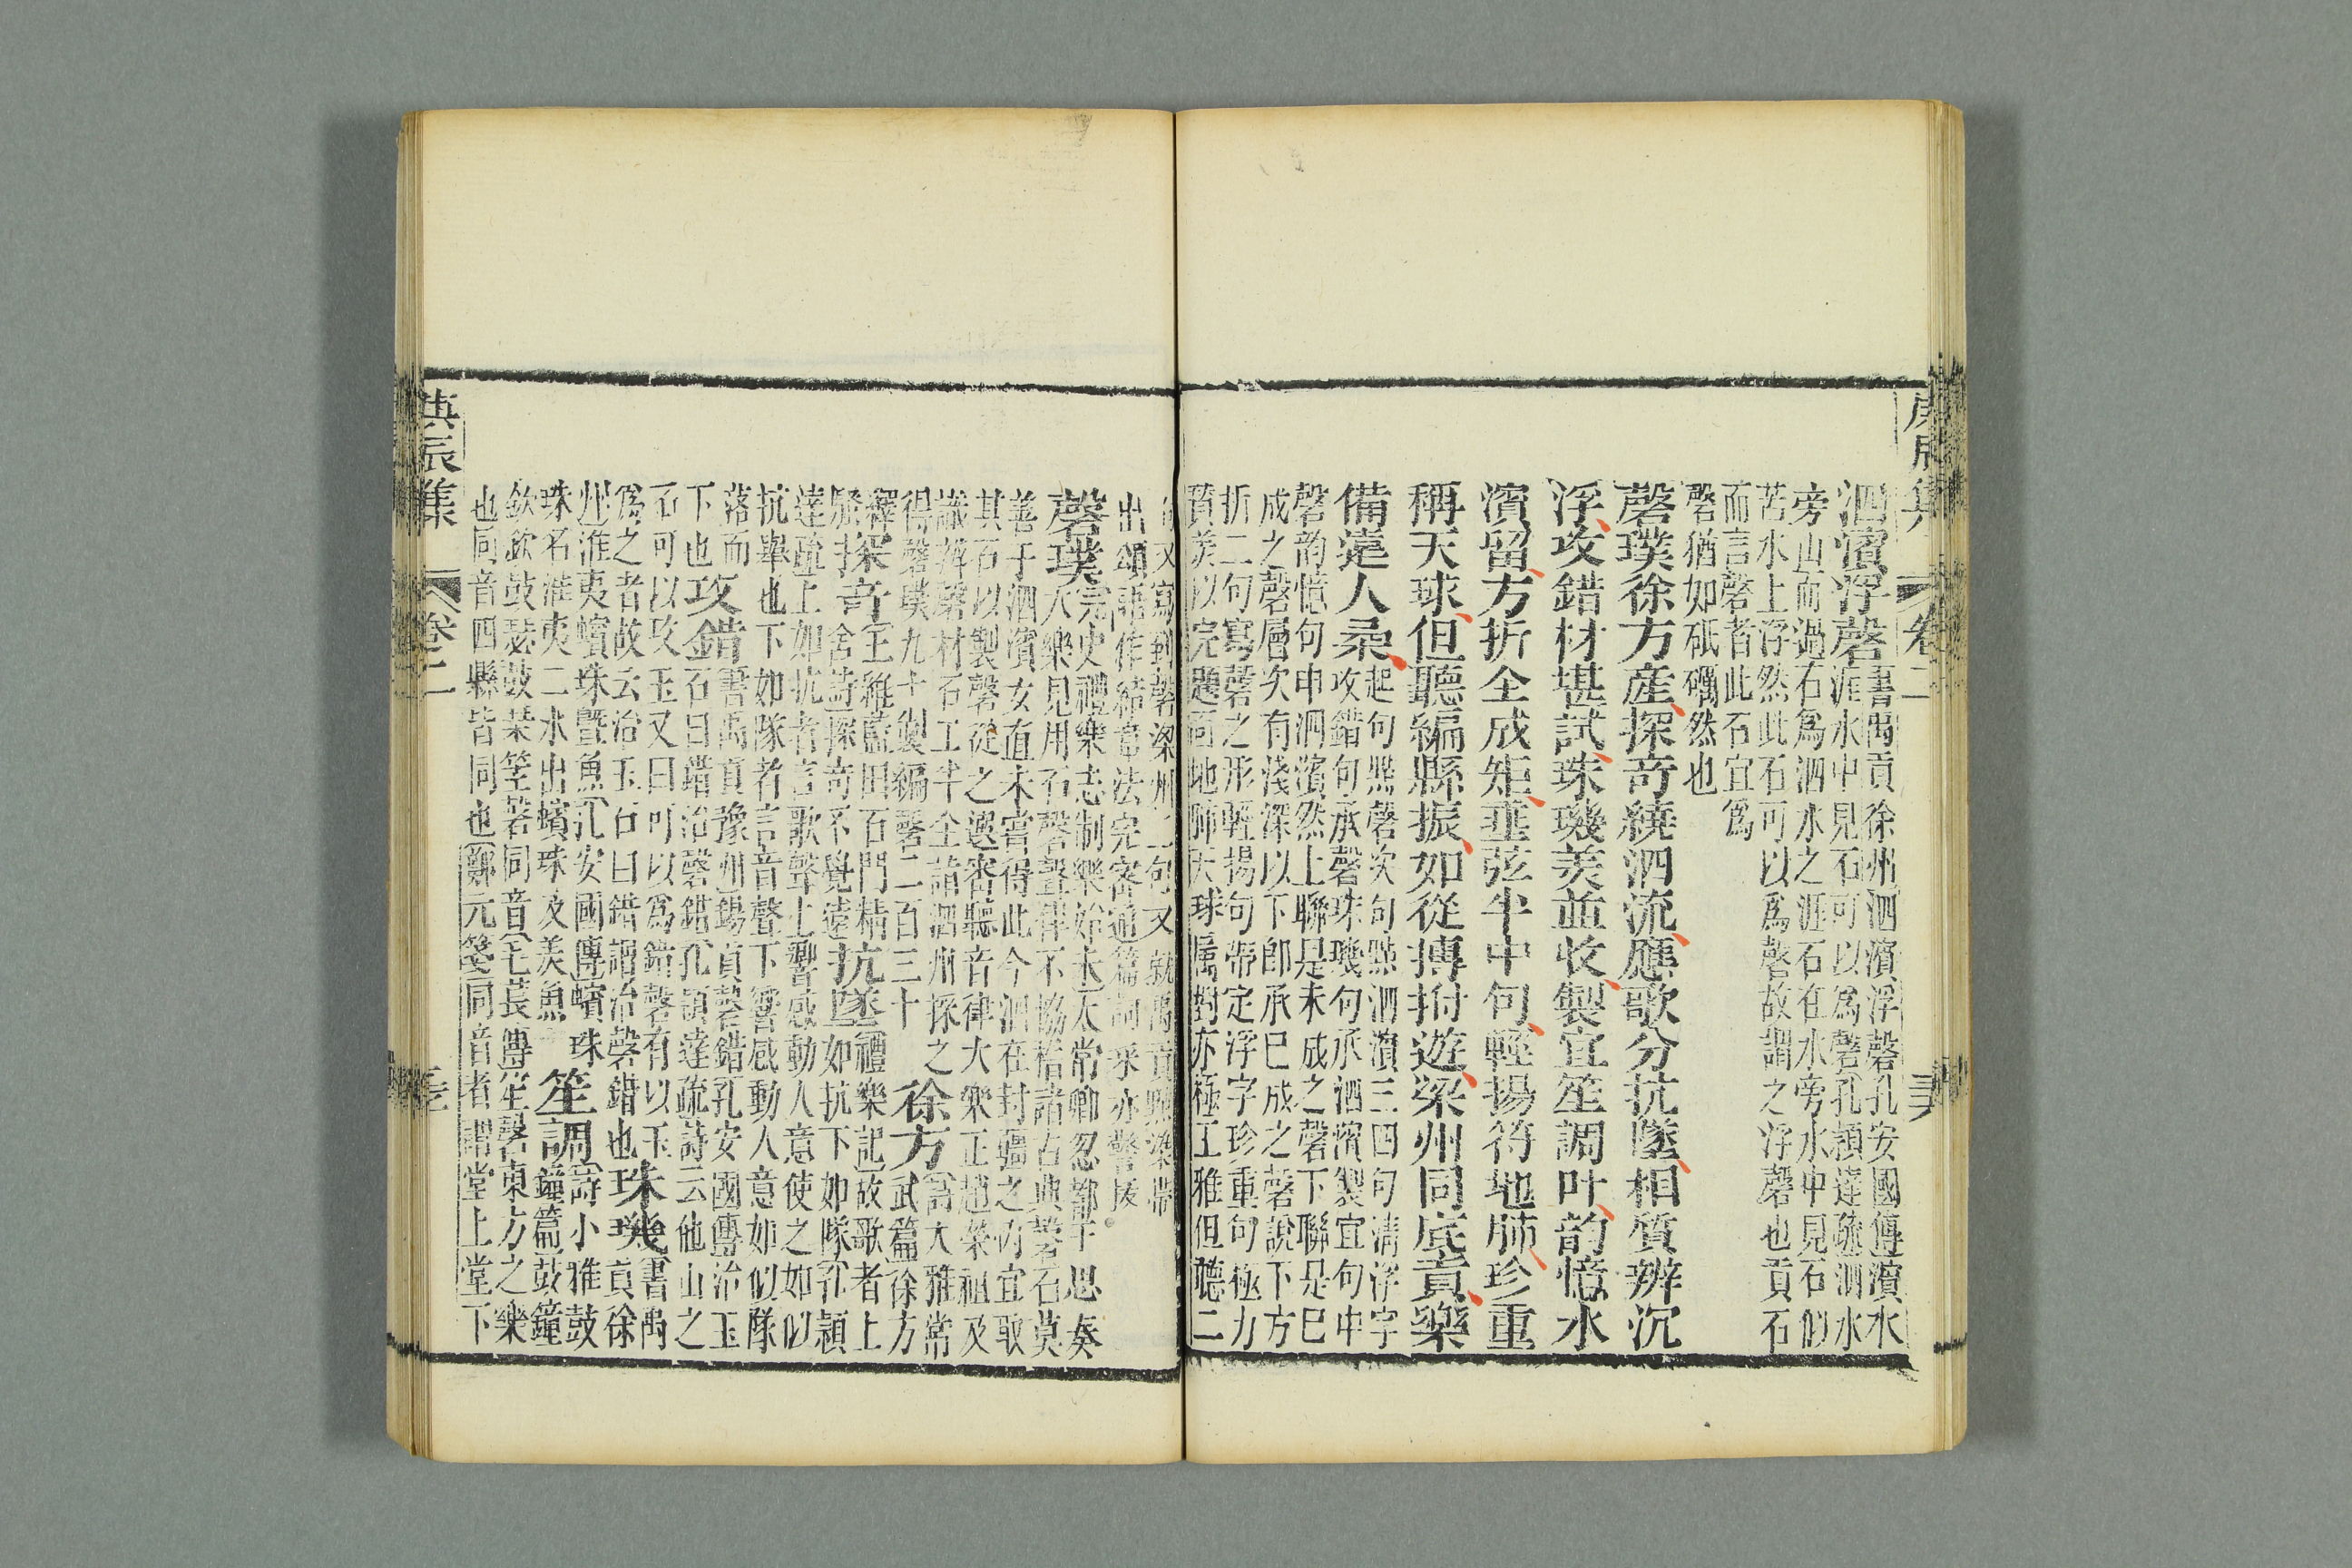 庚辰集
卷二
泗濱浮磬書禹貢徐州泗濱浮磬孔安國傳濱水
涯水中見石可以爲磬孔穎達疏泗水
旁山而過石爲泗水之涯石在水旁水中見石似
若水上浮然此石可以爲磬故謂之浮磬也貢石
而言磬者此石宜爲
磬猶如砥礪然也
磬璞徐方產探奇繞泗流應歌分抗墜相質辨沉
浮攻錯材堪試珠璣美並收製宜笙調叶韵憶水
濱留方折全成矩垂弦半中句輕揚符地肺珍重
稱天球但聽編縣振如從搏拊遊梁州同底貢樂
備遠人柔起句點磬次句點泗濱三四句淸浮字
攻錯句承磬珠璣句承泗濱製宜句申
磬韵憶句申泗濱然上聯是未成之磬下聯是巳
成之磬層次有淺深以下卽承巳成之磬說下方
折二句寫磬之形輕揚句帶定浮字珍重句極力
賛美以完題面地肺天球屬對亦極工雅但聽二
句又寫到磬梁州二句又就禹貢點染帶
出頌語作結章法完密通篇詞采亦警拔
磬璞宋史禮樂志制樂始未太常卿忽都于思奏
大樂見用石磬聲律不協稽諸古典磬石莫
善于泗濱女直未嘗得此今泗在封疆之內宜取
其石以製磬從之選審聽音律大樂正趙榮祖及
識辨磬材石工牛全詣泗州採之
得磬璞九十製編磬二百三十徐方詩大雅常
武篇徐方
繹騷探奇王維藍田石門精
舍詩探奇不覺遠抗墜禮樂記故歌者上
如抗下如隊孔穎
達疏上如抗者言歌聲上響感動人意使之如似
抗舉也下如隊者言音聲下響感動人意如似隊
落而
下也攻錯書禹貢豫州錫貢磬錯孔安國傳治玉
石曰錯治磬錯孔穎達疏詩云他山之
石可以攻玉又曰可以爲錯磬有以玉
爲之者故云治玉石曰錯謂治磬錯也珠璣書禹
貢徐
州淮夷蠙珠曁魚孔安國傳蠙珠
珠名淮夷二水出蠙珠及美魚笙調詩小雅鼓
鐘篇鼓鐘
欽欽鼓瑟鼓琴笙磬同音毛萇傳笙磬東方之樂
也同音四縣皆同也鄭元箋同音者謂堂上堂下
庚辰集
卷二